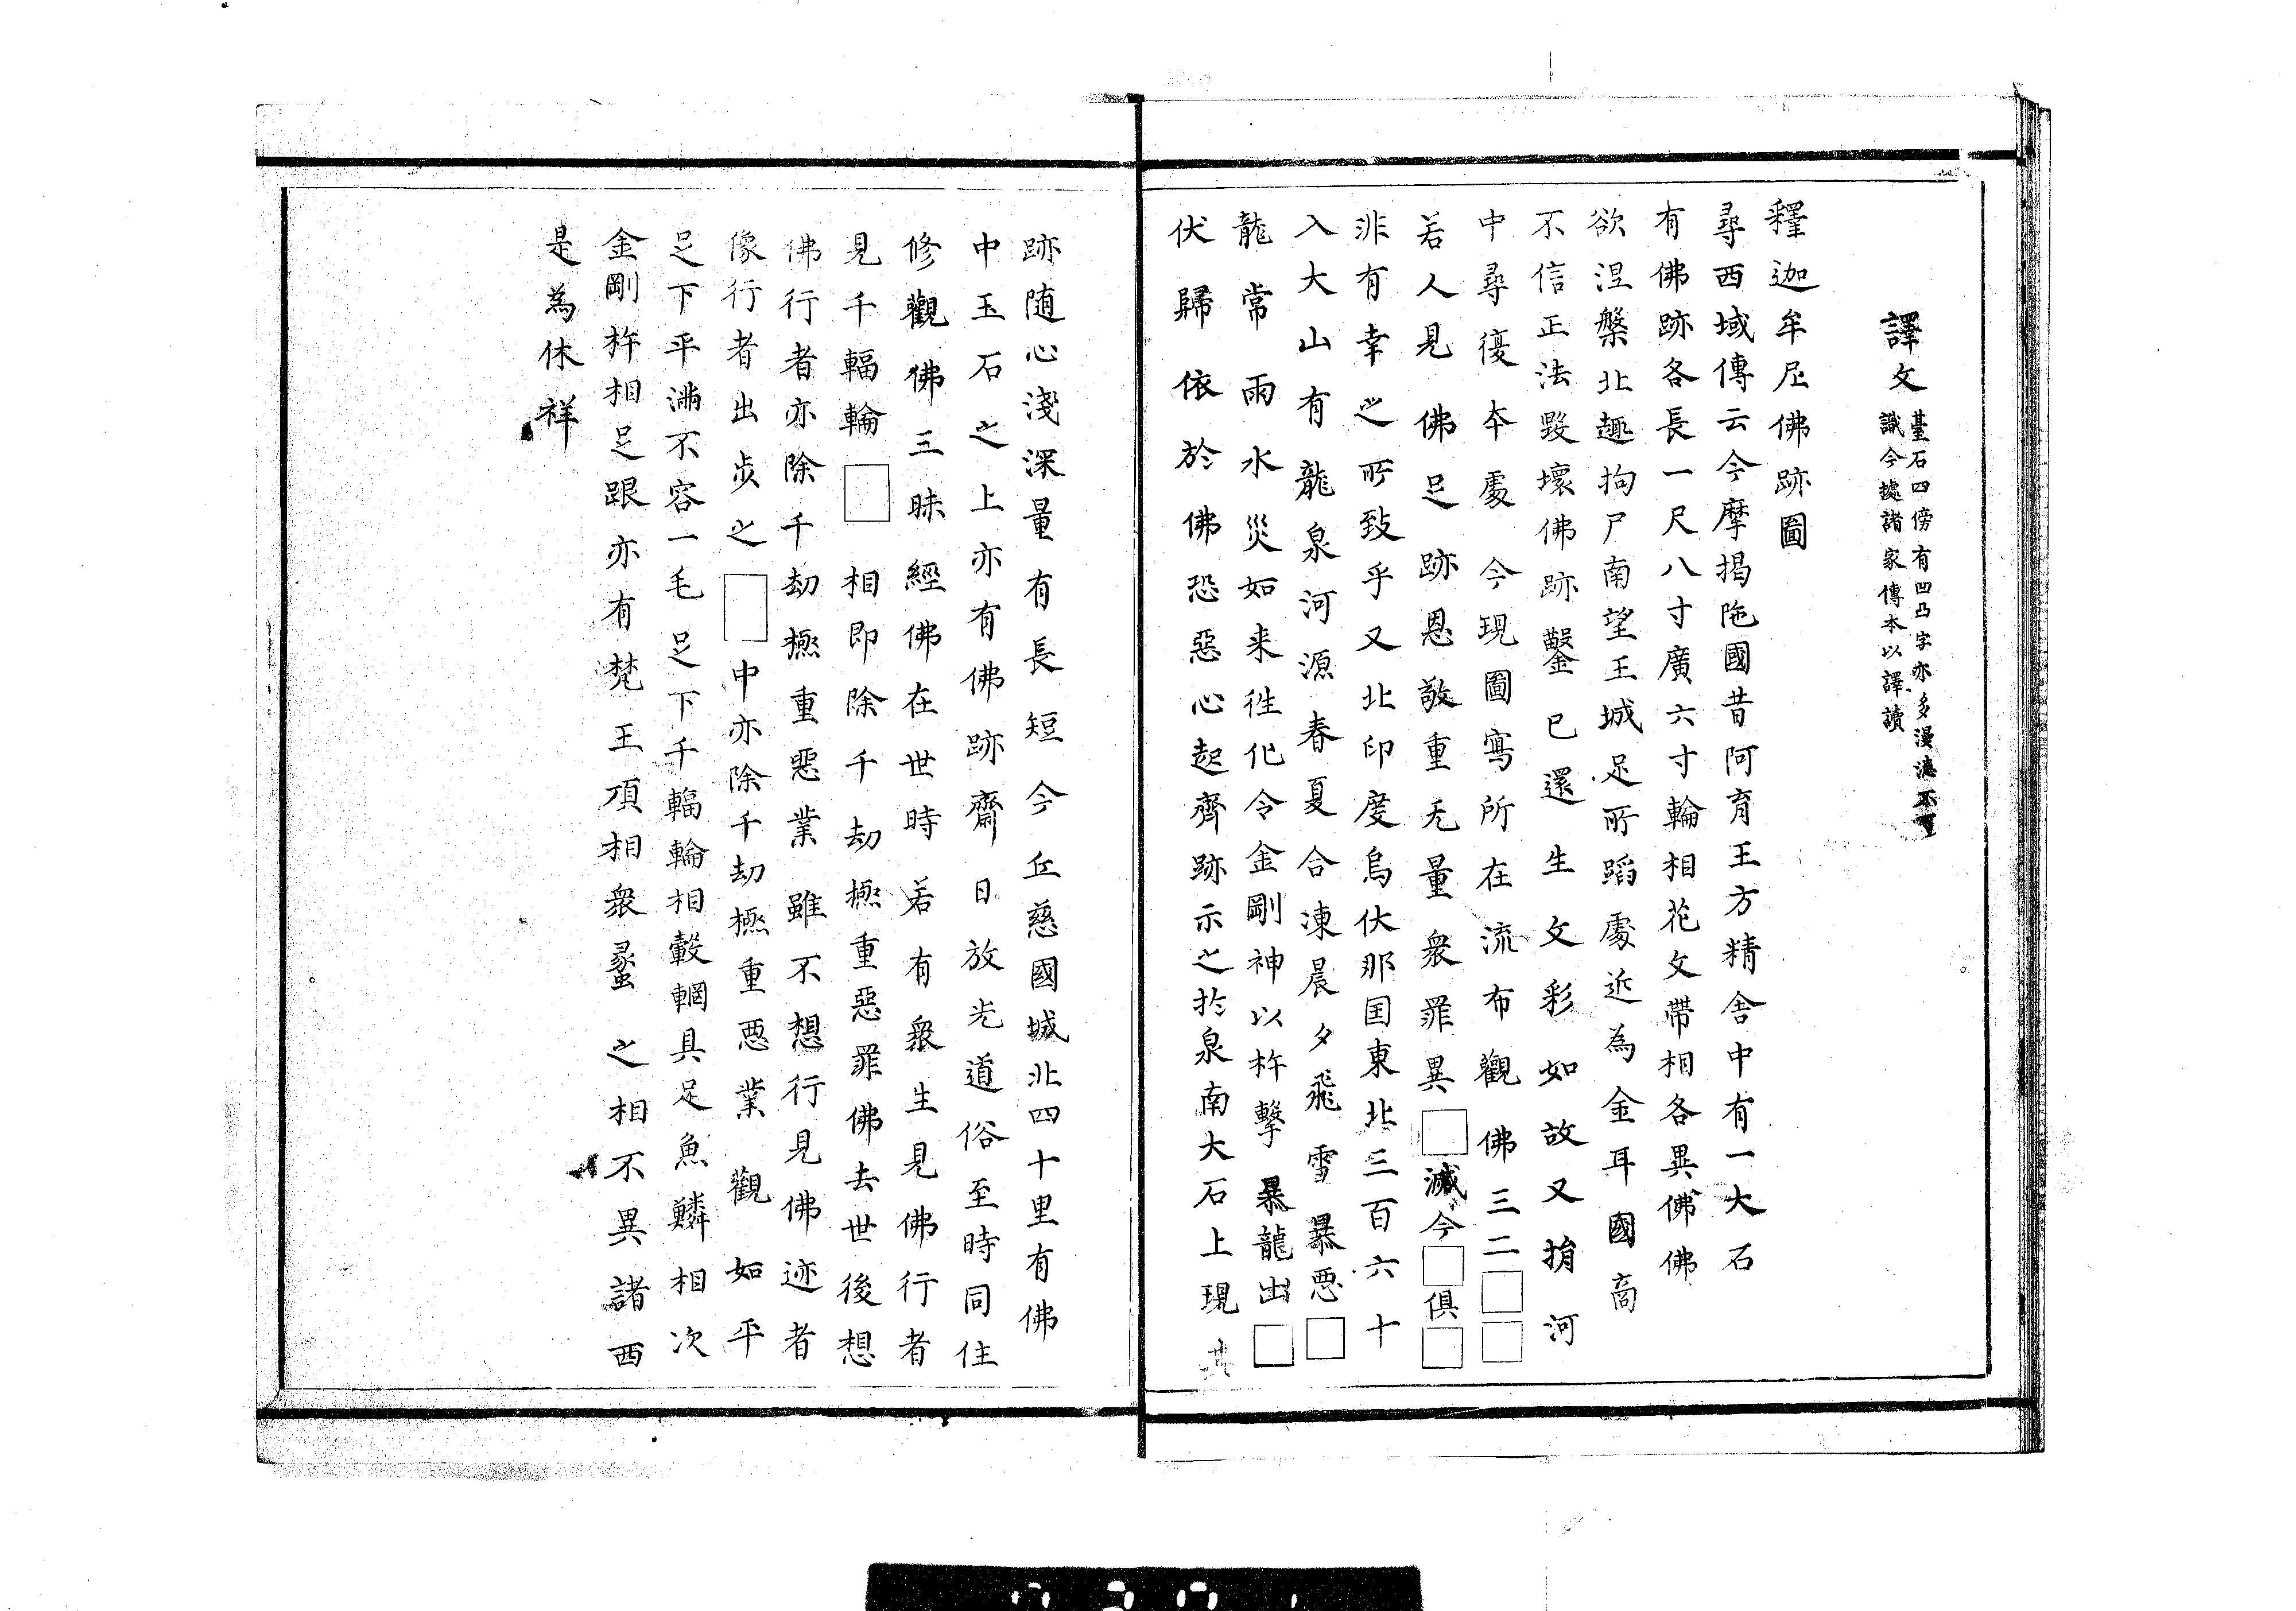 譯文
臺石四傍有凹凸字亦多漫漶不可
識今據諸家傳本以譯讀
釋迦牟尼佛跡圖
尋西域傳云今摩揭陁國昔阿育王方精舎中有一大石
有佛跡各長一尺八寸廣六寸輪相花文帶相各異佛佛
欲涅槃北趣拘尸南望王城足所蹈處近為金耳國啇
不信正法毀壞佛跡鑿已還生文彩如故又捐河
中尋復本處今現圖寫所在流布觀佛三二□□
若人見佛足跡恩敬重无量衆罪異□滅今□俱□
非有幸之所致乎又北印度烏伏那国東北三百六十
入大山有龍泉河源春夏合凍晨夕飛雪暴悪□
龍常雨水災如来徃化令金剛神以杵擊暴龍出□
伏歸依於佛恐惡心起齊跡示之扵泉南大石上現其
跡随心淺深量有長短今丘慈國城北四十里有佛
中玉石之上亦有佛跡齋日放光道俗至時同住
修觀佛三昧經佛在世時若有衆生見佛行者
見千輻輪□相即除千劫極重惡罪佛去世後想
佛行者亦除千劫極重惡業雖不想行見佛迹者
像行者出歩之□中亦除千劫極重悪業觀如平
足下平滿不容一毛足下千輻輪相轂輞具足魚鱗相次
金剛杵相足跟亦有梵王頂相衆蠡之相不異諸西
是為休祥